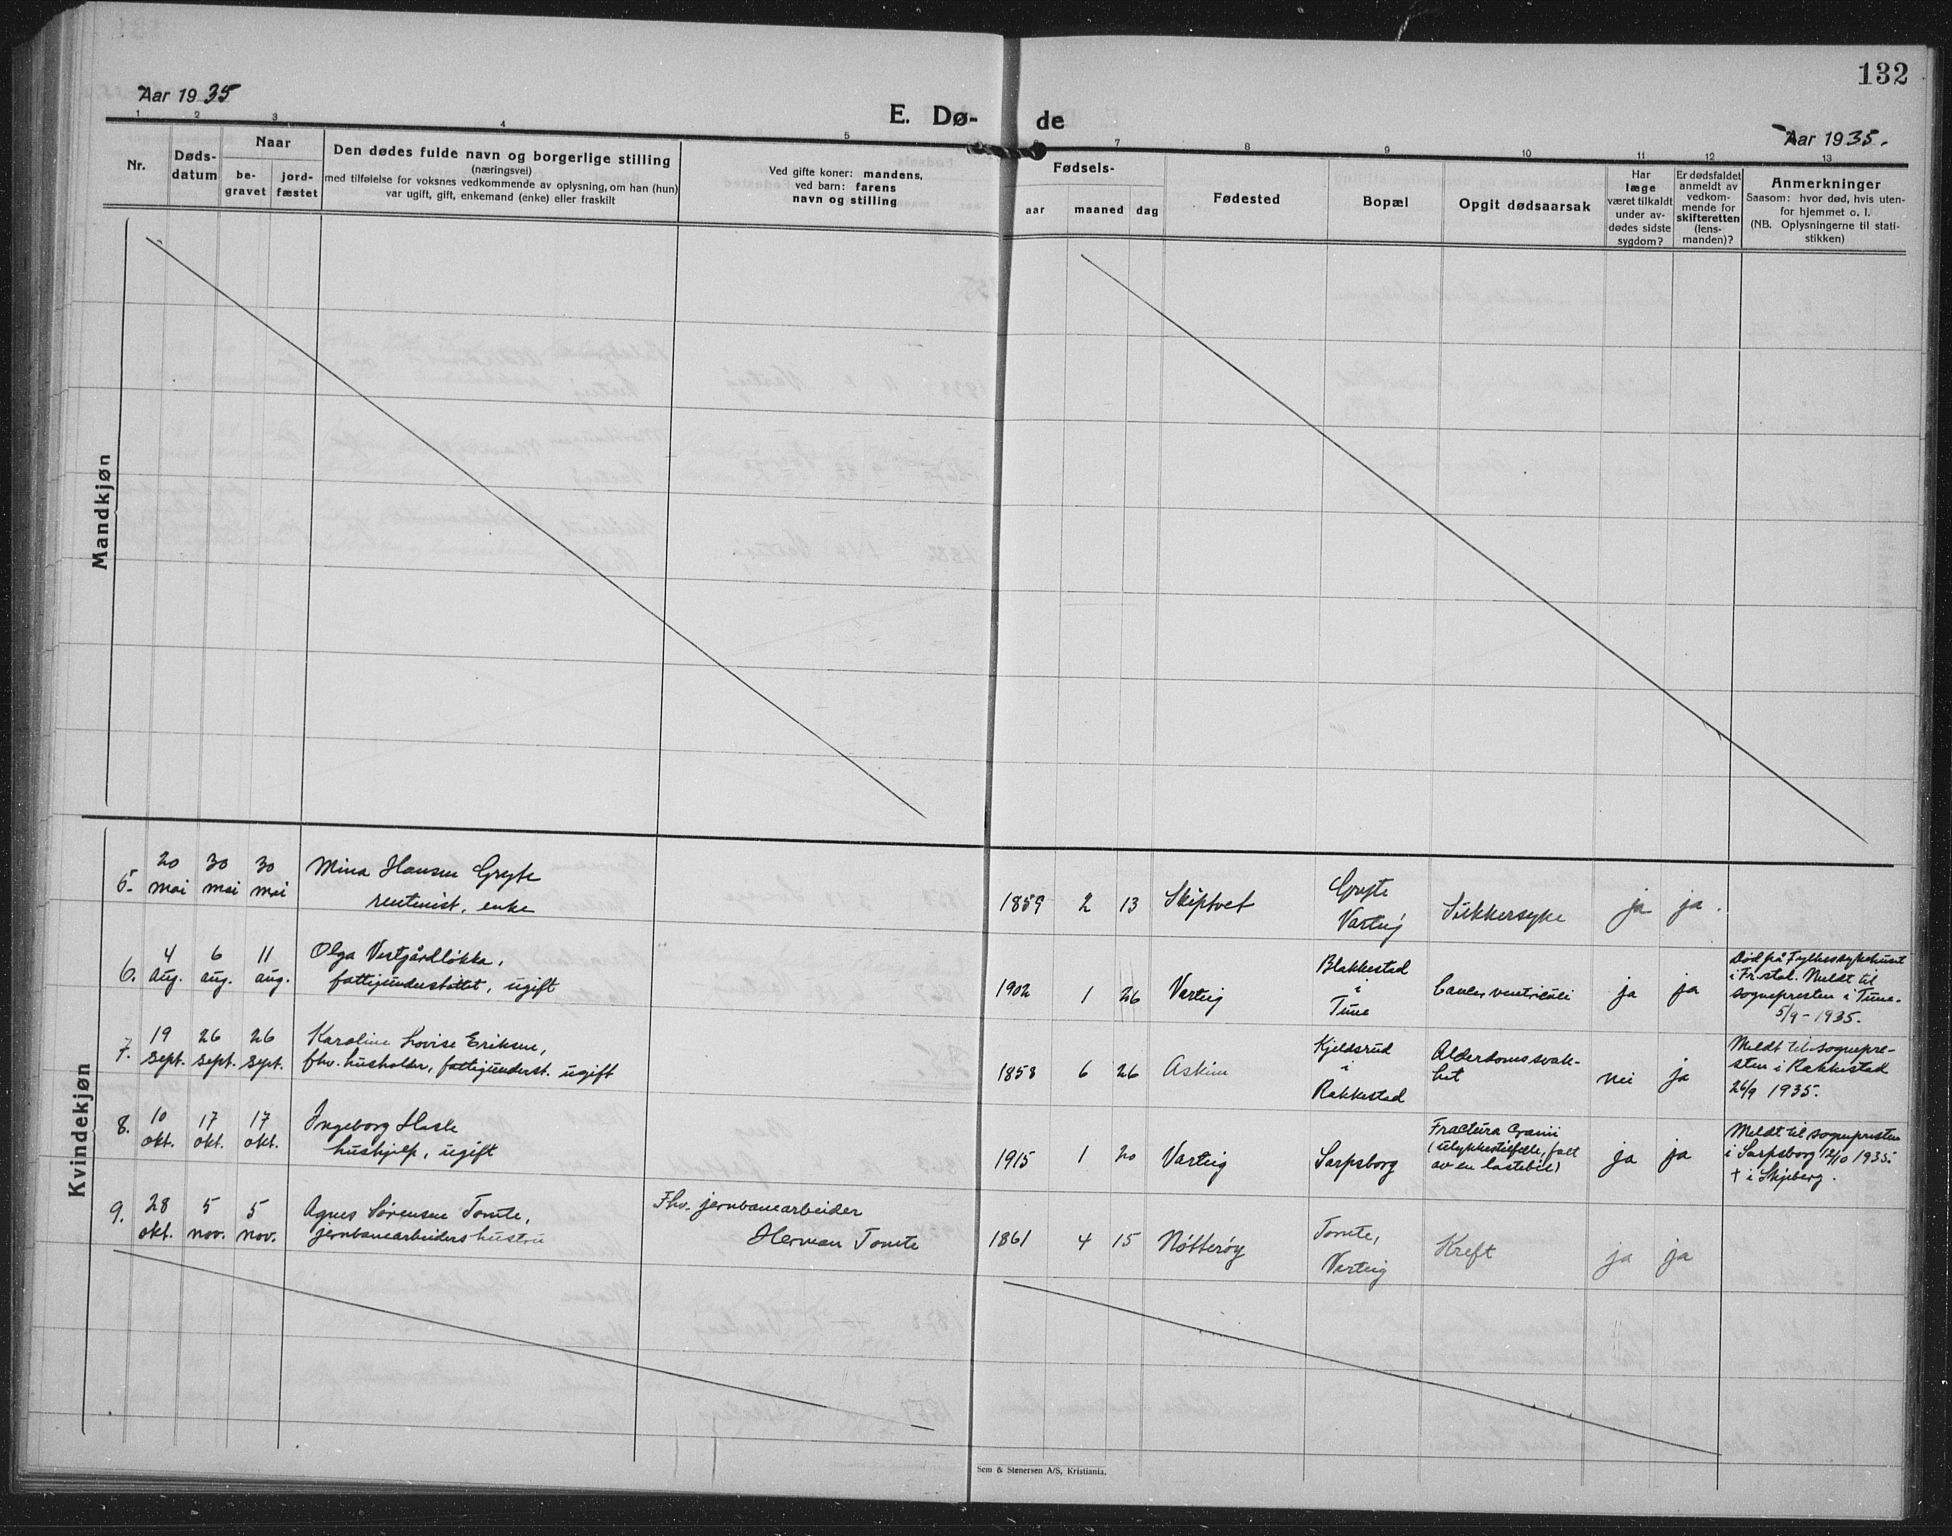 132
Aar 1935
E. Dø- de
Aar 1935.
1 2 3 4 5 7 8 9 10 11 12 13
Nr.
Døds-
datum
Naar
be-
gravet
jord-
fæstet
Den dødes fulde navn og borgerlige stilling
(næringsvei)
med tilføielse for voksnes vedkommende av oplysning, om han (hun)
var ugift, gift, enkemand (enke) eller fraskilt
Ved gifte koner: mandens,
ved barn: farens
navn og stilling
Fødsels-
aar maaned dag
Fødested
Bopæl
Opgit dødsaarsak
Har
læge
været tilkaldt
under av-
dødes sidste
sygdom?
Er dødsfaldet
anmeldt av
vedkom-
mende for
skifteretten
(lens-
manden)?
Anmerkninger
Saasom: hvor død, hvis uten-
for hjemmet o. l.
(NB. Oplysningerne til stati-
stikken)
Mandkjøn
Kvindekjøn
5. 20 mai 30 mai 30 mai
Mina Hansen Gryte
rentenist, enke
1859 2 13 Skiptvet
Gryte
Varteig
Sukkersyke
ja ja.
6. 4 aug. 6 aug. 11 aug.
Olga Vestgårdløkka,
fattigunderstøttet, ugift
1902 1 26 Varteig
Blakkestad
i
Tune
Cancer ventriculi
ja ja
Død på Fylkessykehuset
i Fr.stad. Meldt til
sognepresten i Tune.
5/9-1935.
7. 19 sept. 26 sept. 26 sept.
Karoline Lovise Eriksen,
fhv. husholder, fattigunderst. ugift
1858 6 26 Askim
Kjeldsrud
i
Rakkestad
Alderdomssvak-
het
nei ja
Meldt til sognepre-
sten i Rakkestad
26/9 1935.
8. 10 okt. 17 okt. 17 okt.
Ingeborg Hasle
hushjelp, ugift
1915 1 20 Varteig
Sarpsborg
Fractura Cranii
(ulykkestilfelle, falt
av en lastebil)
ja ja
Meldt til sognepresten
i Sarpsborg 12/10 1935.
† i Skjeberg.
9. 28 okt. 5 nov. 5 nov.
Agnes Sørensen Tomte,
jernbanearbeiders hustru
Fhv. jernbanearbeider
Herman Tomte
1861 4 15 Nøtterøy
Tomte,
Varteig
Kreft
ja ja
Sem & Stenersen A/S, Kristiania.